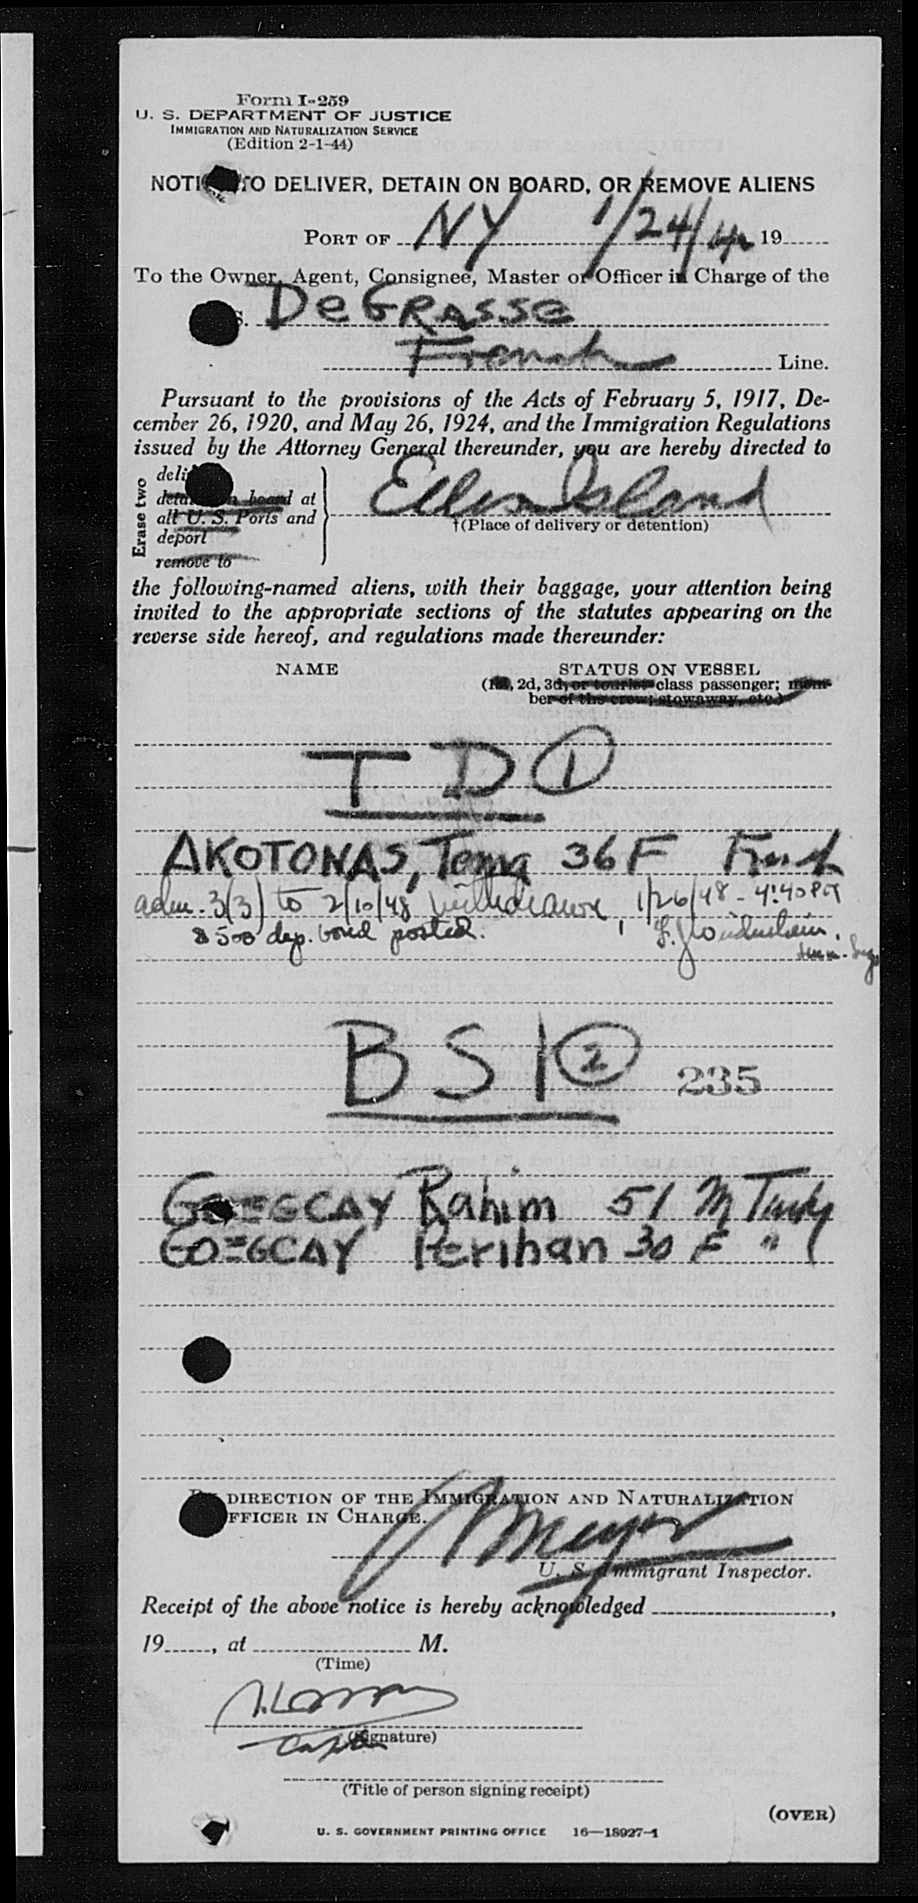 Form I-259
U. S. DEPARTMENT OF JUSTICE
IMMIGRATION AND NATURALIZATION SERVICE
(Edition 2-1-44)
TO DELIVER, DETAIN ON BOARD, OR REMOVE ALIENS
PORT OF NY 1/24/48 19
To the Owner, Agent, Consignee, Master or Officer in Charge of the
S. DeGRASSE
French Line.
Pursuant to the provisions of the Acts of February 5, 1917, De-
cember 26, 1920, and May 26, 1924, and the Immigration Regulations
issued by the Attorney General thereunder, you are hereby directed to
Erase two
detain on board at
all U. S. Ports and
deport
remove to
Ellis Island
†(Place of delivery or detention)
the following-named aliens, with their baggage, your attention being
invited to the appropriate sections of the statutes appearing on the
reverse side hereof, and regulations made thereunder:
NAME STATUS ON VESSEL
2d, 3d, or tourist class passenger; mem-
ber of the crew; stowaway, etc.)
T D 1
AKOTONAS, 36 F French
adm. 3(3) to 2/10/48 withdrawn 1/26/48 - 4:40 PM
$500 dep. bond posted.
B S I 2 235
Rahim 51 M Turky
GOEGCAY Perihan 30 F "
DIRECTION OF THE IMMIGRATION AND NATURALIZATION
IN CHARGE.
Meyer
U. S. Immigrant Inspector.
Receipt of the above notice is hereby acknowledged ,
19 , at M.
(Time)
(Signature)
(Title of person signing receipt)
(OVER)
U. S. GOVERNMENT PRINTING OFFICE 16—18927-1